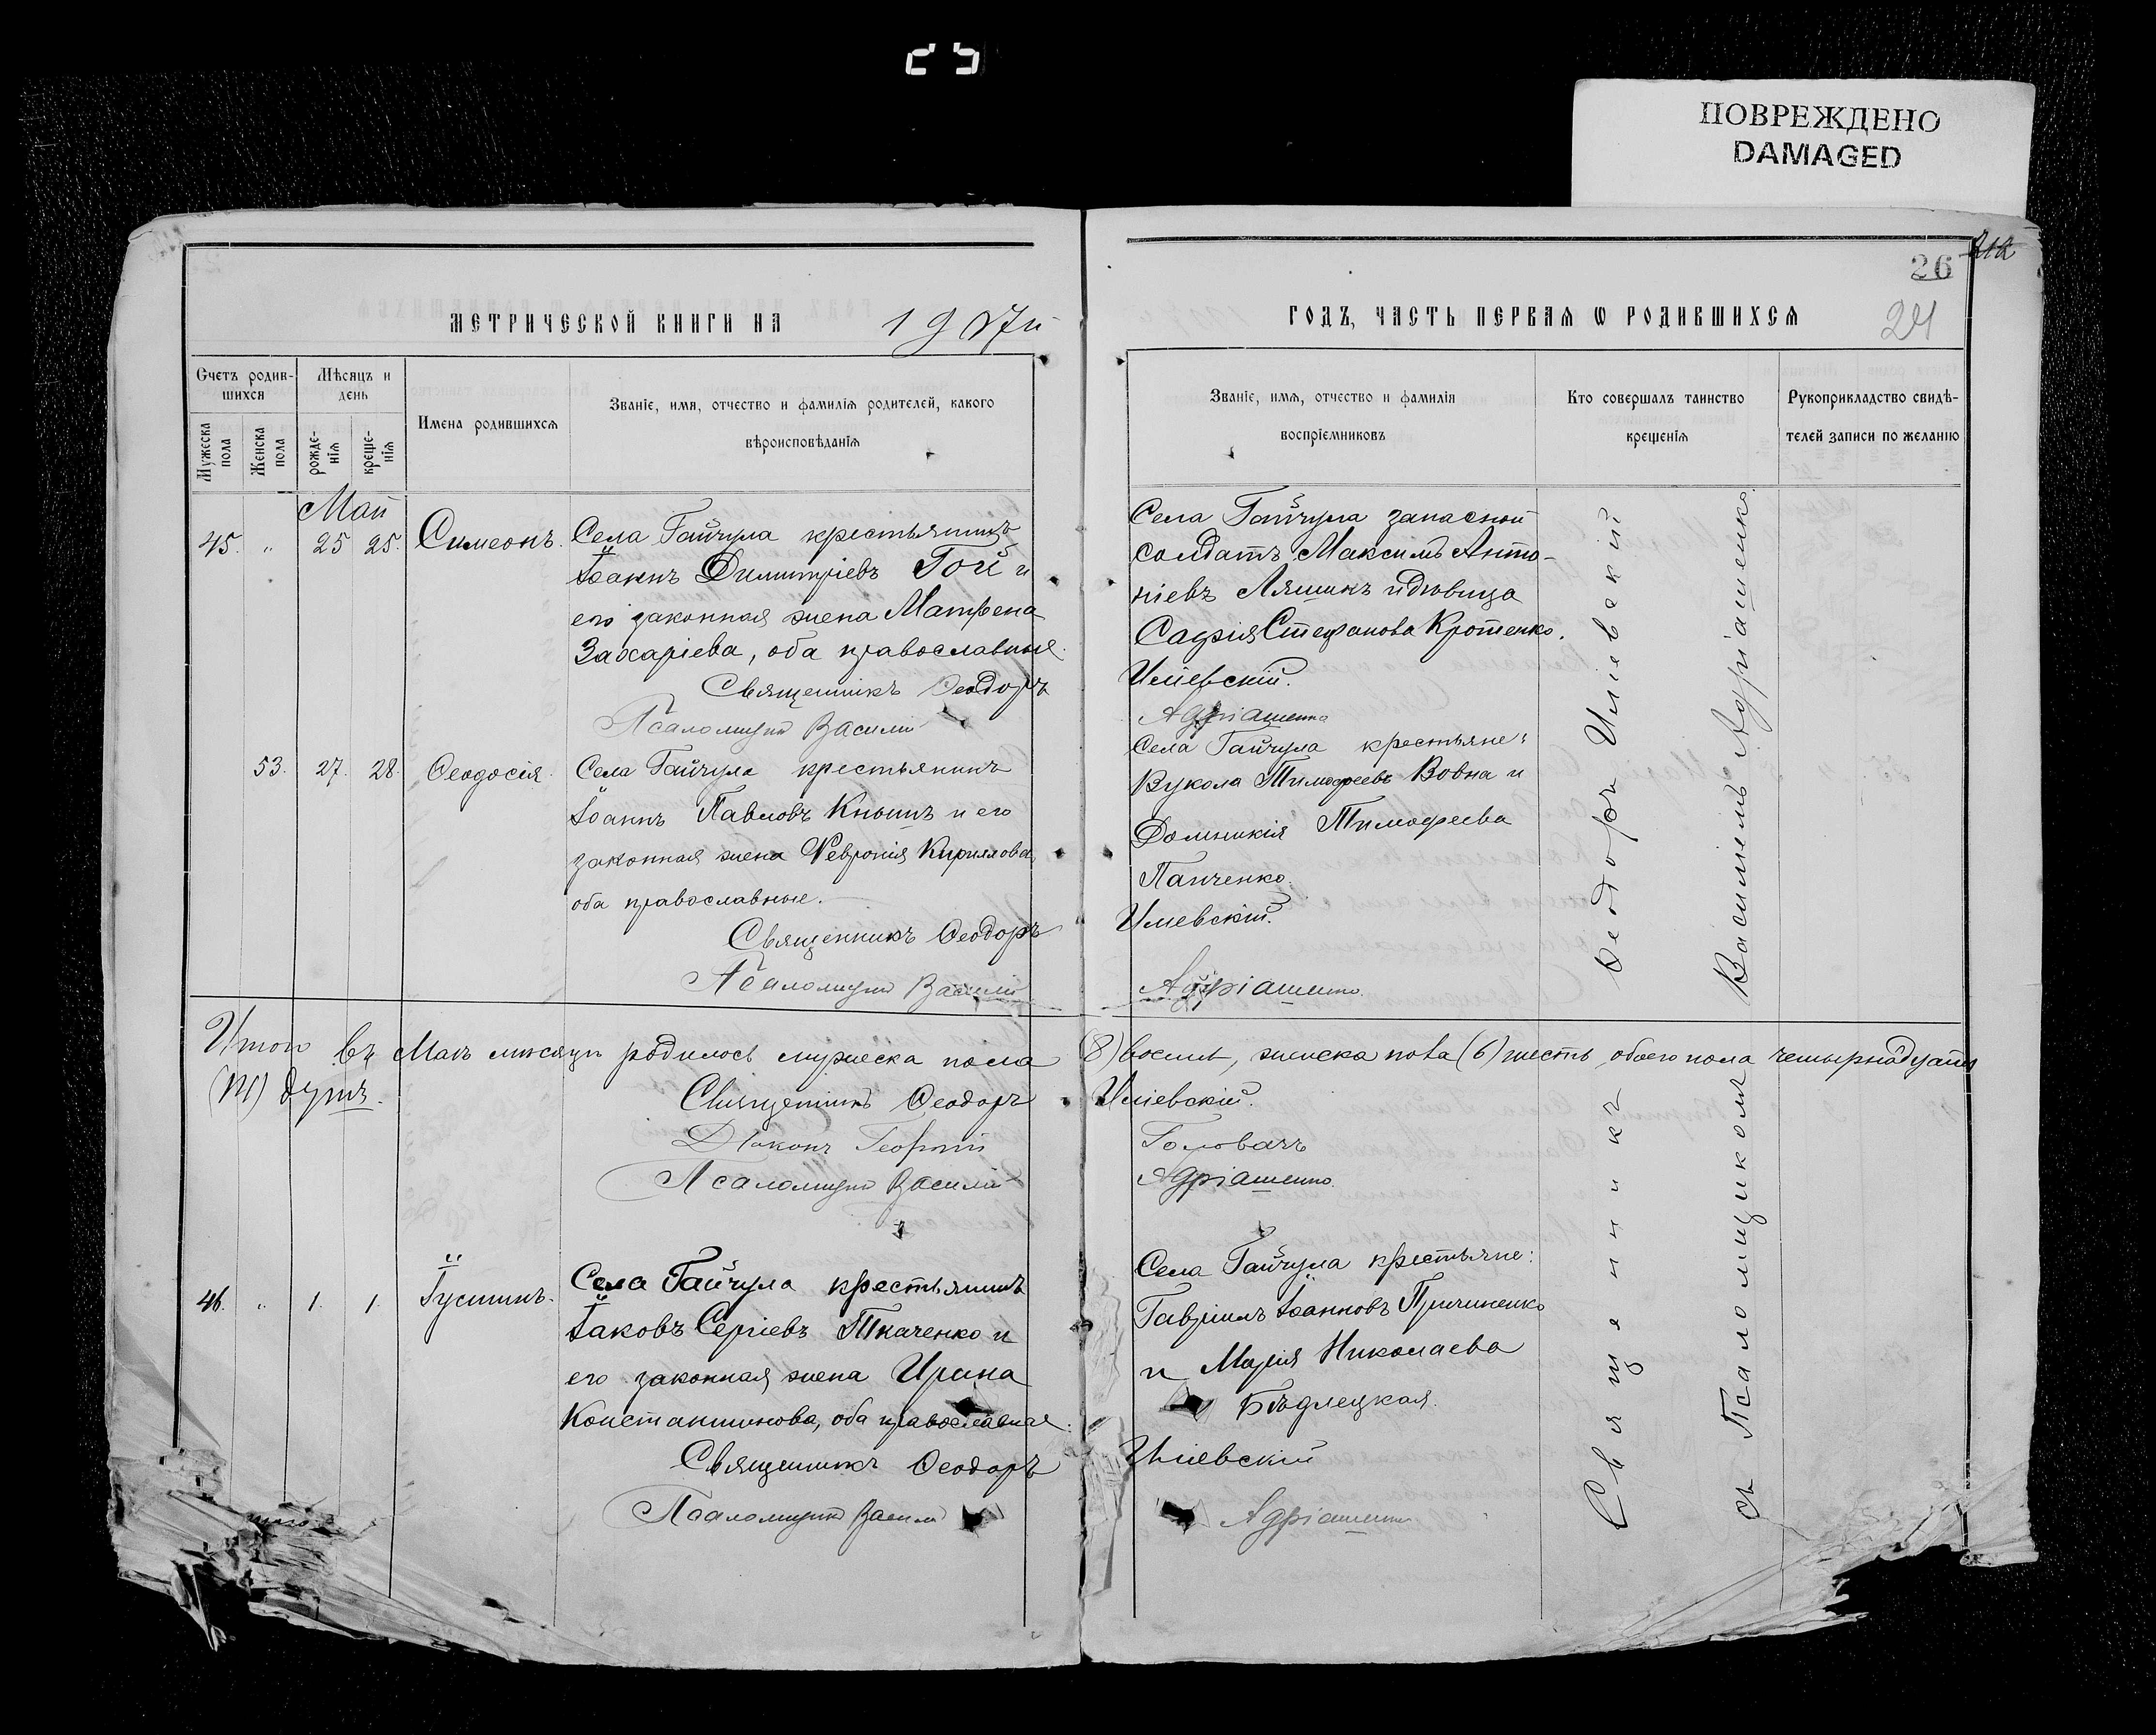 ПОВРЕЖДЕНО
DAMAGED
26
24
МЕТРИЧЕСКОЙ КНИГИ НА 1907й
ГОДЪ, ЧАСТЬ ПЕРВАЯ Ѡ РОДИВШИХСЯ
Счетъ родив-
шихся
Мужеска пола
Женска пола
Мѣсяцъ и
день
рожде-
нія
креще-
нія
Имена родившихся
Званіе, имя, отчество и фамилія родителей, какого
вѣроисповѣданія
Званіе, имя, отчество и фамилія
воспріемниковъ
Кто совершалъ таинство
крещенія
Рукоприкладство свидѣ-
телей записи по желанію
Май
45. " 25 25. Симеонъ.
Села Гайчула крестьянинъ
Іоаннъ Димитріевъ Гой и
его законная жена Матрена
Захаріева, оба православные.
Священникъ Ѳеодоръ
Псаломщикъ Василій
Села Гайчула запасной
солдатъ Максимъ Анто-
ніевъ Ляшикъ и дѣвица
Софія Стефанова Кротенко.
Иліевскій.
Адріашенко
53. 27. 28. Ѳеодосія.
Села Гайчула крестьянинъ
Іоаннъ Павловъ Кнышъ и его
законная жена Февронія Кириллова,
оба православные.
Священникъ Ѳеодоръ
Псаломщикъ Василій
Села Гайчула крестьяне:
Вукола Тимофеевъ Вовна и
Домникія Тимофеева
Панченко.
Иліевскій.
Адріашенко.
Итого въ Маѣ мѣсяцѣ родилось мужеска пола (8) восемь, женска пола (6) шесть, обоего пола четырнадцать
(14) душъ.
Священникъ Ѳеодоръ Иліевскій.
Діаконъ Георгій Головачъ
Псаломщикъ Василій Адріашенко.
46. " 1. 1. Іустинъ.
Села Гайчула крестьянинъ
Іаковъ Сергіевъ Ткаченко и
его законная жена Ирина
Константинова, оба православные.
Священникъ Ѳеодоръ
Псаломщикъ Василій
Села Гайчула крестьяне:
Гавріилъ Іоанновъ Причиненко
и Марія Николаева
Бѣдлецкая.
Иліевскій
Адріашенко
Священникъ Ѳеодоръ Иліевскій
съ Псаломщикомъ Василіемъ Адріашенко.